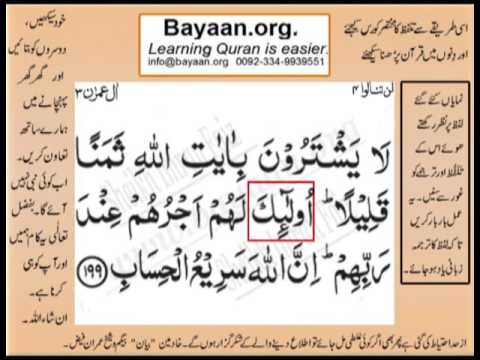 Bayaan.org.
Learning Quran is easier.
info@bayaan.org 0092-334-9939551
اسی طریقے سے تلفظ کا مختصر کورس کیجئے
اور دنوں میں قرآن پڑھنا سیکھئے
لن تنالوا ۴
اٰل عمرٰن ۳
لَا يَشْتَرُوْنَ بِاٰيٰتِ اللّٰهِ ثَمَنًا
قَلِيْلًا ؕ اُولٰٓئِكَ لَهُمْ اَجْرُهُمْ عِنْدَ
رَبِّهِمْ ؕ اِنَّ اللّٰهَ سَرِيْعُ الْحِسَابِ ۝۱۹۹
نمایاں کئے گئے
لفظ پر نظر رکھتے
ہوئے اس کے
تلفظ اور ترجمے کو
غور سے سنیں۔ یہ
عمل بار بار کریں
تاکہ لفظ کا ترجمہ
زبانی یاد ہو جائے۔
خود سیکھیں،
دوسروں کو بتائیں
اور گھر گھر
پہنچانے میں
ہمارے ساتھ
تعاون کریں۔
اب کوئی نبی نہیں
آئے گا۔ بفضل
تعالٰی یہ کام ہمیں
اور آپ کو ہی
کرنا ہے۔
ان شاء اللہ۔
از حد احتیاط کی گئی ہے پھر بھی اگر کوئی غلطی مل جائے تو اطلاع دینے والے کے شکر گزار ہوں گے۔ خادمین "بیان" بیگم و شیخ عمران فیض۔